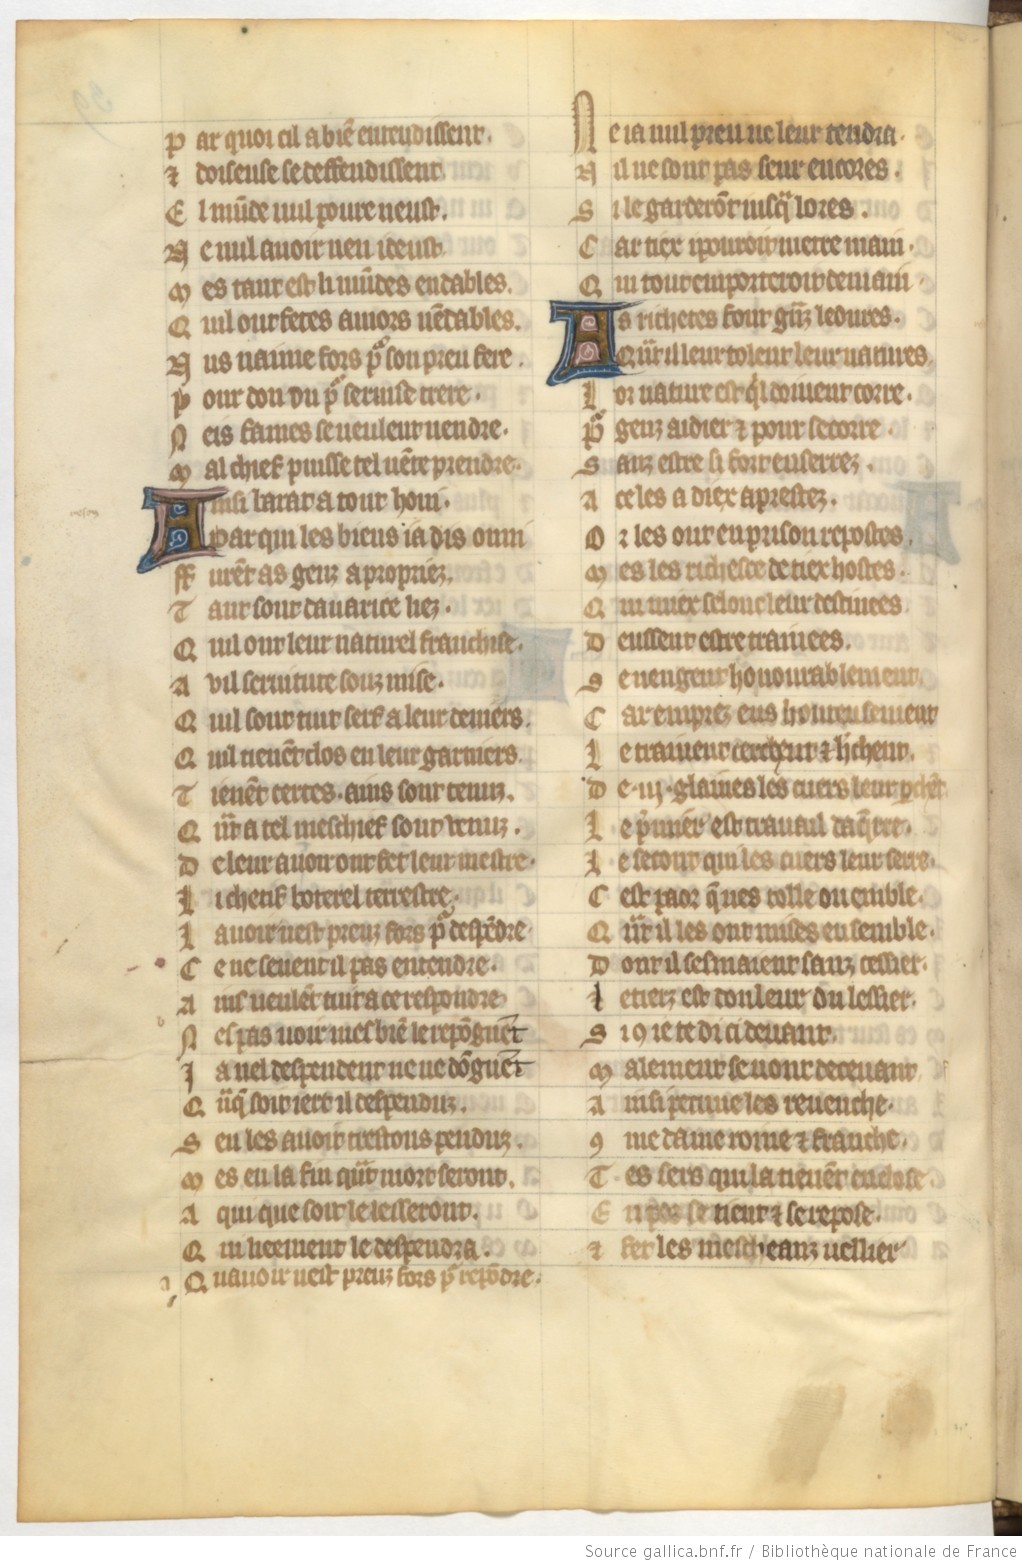 P ar quoi cil a biē entendissent.
⁊ doiseuse se deffendissent
E l mūde nul poure neust.
N e nul auoir neu deust
M es tant est li mūdes endables.
Q uil ont fetes amors uēdables.
N us naime fors pͣ son preu fere.
P our don ou pͣ seruise trere.
N eis fames se ueulent uendre.
M al chief puisse tel uēte prendre.
A insi barat a tout honi.
Par qui les biens ia dis onni
ff urēt as genz apropriez.
T ant sont dauarice liez.
Q uil ont leur naturel franchise.
A vil seruitute souz mise.
Q uil sont tuit serf a leur deniers.
Q uil tienēt clos en leur garniers.
T ienēt certes. ains sont tenuz.
Q n̄t a tel meschief sont venuz.
D e leur auoir ont fet leur mestre.
L i chetif boterel terrestre.
L auoir nest preuz fors pͣ despēdre
C e ne seuent il pas entendre.
A ins ueulēt tuit a ce respondre
N est pas uoir mes biē le repōgnēt
J a uel despendent ne ne dōgnēt
Q n̄q̄ soit iert il despenduz.
S en les auoit trestous penduz.
M es en la fin qn̄t mort seront.
A qui que soit le lesseront.
Q ui liement le despendra.
Q uauoir nest preuz fors pͣ repōdre.
N e ia nul preu ne leur rendra.
N il ne sont pas seur encores.
S i le garderōt iusqͣ lores.
C ar tiex i pouroit metre main.
Q ui tout emporteroit demain.
A s richeces font gn̄z ledures.
Qn̄t il leur tolent leur natures.
L or nature est qͥl doiuent corre.
Pͣ genz aidier ⁊ pour secorre
S anz estre si fort enserrez.
A ce les a diex aprestez.
O r les ont en prison repostes.
M es les richesce de tiex hostes.
Q ui miex selonc leur destinees
D eussent estre trainees.
S e uengent honourablement.
C ar emprez eus honteusement
L e trainent cerchent ⁊ hichent.
D e .iij. glaiues les cuers leur pchēt
L e pͥmier est trauail daq̄rre.
L e secont qui les cuers leur serre.
C est paor q̄ nes tolle ou emble.
Q n̄t il les ont mises ensemble.
D ont il sesmaient sanz cessier.
L e tierz est douleur du lessier.
S i 9 ie te di ci deuant.
M alement se uont deceuant.
A insi pecune les reuenche.
9 me dame roine ⁊ franche.
T es sers qui la tienēt enclose
E n pez se tient ⁊ se repose.
⁊ fet les mescheanz ueillier
Source gallica.bnf.fr / Bibliothèque nationale de France